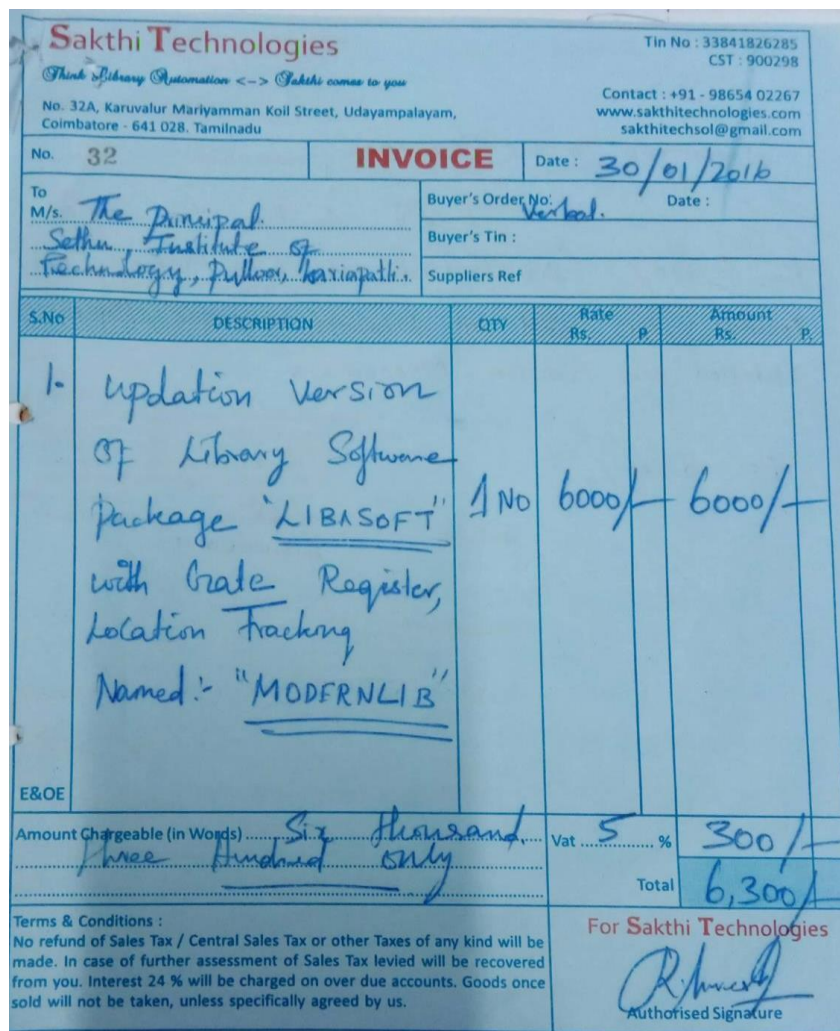 Sakthi Technologies
Think Library Automation <-> Sakthi comes to you
No. 32A, Karuvalur Mariyamman Koil Street, Udayampalayam,
Coimbatore - 641 028. Tamilnadu
Tin No : 33841826285
CST : 900298
Contact : +91 - 98654 02267
www.sakthitechnologies.com
sakthitechsol@gmail.com
No. 32 INVOICE Date : 30/01/2016
To
M/s. The Principal
Sethu Institute of
Technology, Pulloor, Kariapatti.
Buyer's Order No: Verbal. Date :
Buyer's Tin :
Suppliers Ref
S.No DESCRIPTION QTY Rate Amount
Rs. P Rs. P.
1. Updation Version
of Library Software
Package "LIBASOFT" 1 No 6000/- 6000/-
with Gate Register,
Location Tracking
Named:- "MODERNLIB"
E&OE
Amount Chargeable (in Words) Six thousand Vat 5 % 300/-
three Hundred only
Total 6,300/-
Terms & Conditions :
No refund of Sales Tax / Central Sales Tax or other Taxes of any kind will be
made. In case of further assessment of Sales Tax levied will be recovered
from you. Interest 24 % will be charged on over due accounts. Goods once
sold will not be taken, unless specifically agreed by us.
For Sakthi Technologies
Authorised Signature